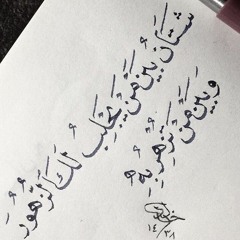 شَتَّانَ بَيْنَ مَنْ يَجْلِبُ لَكَ الزُّهُورَ
وَبَيْنَ مَنْ تُزْهِرُ بِهِ
١٤/٣٨